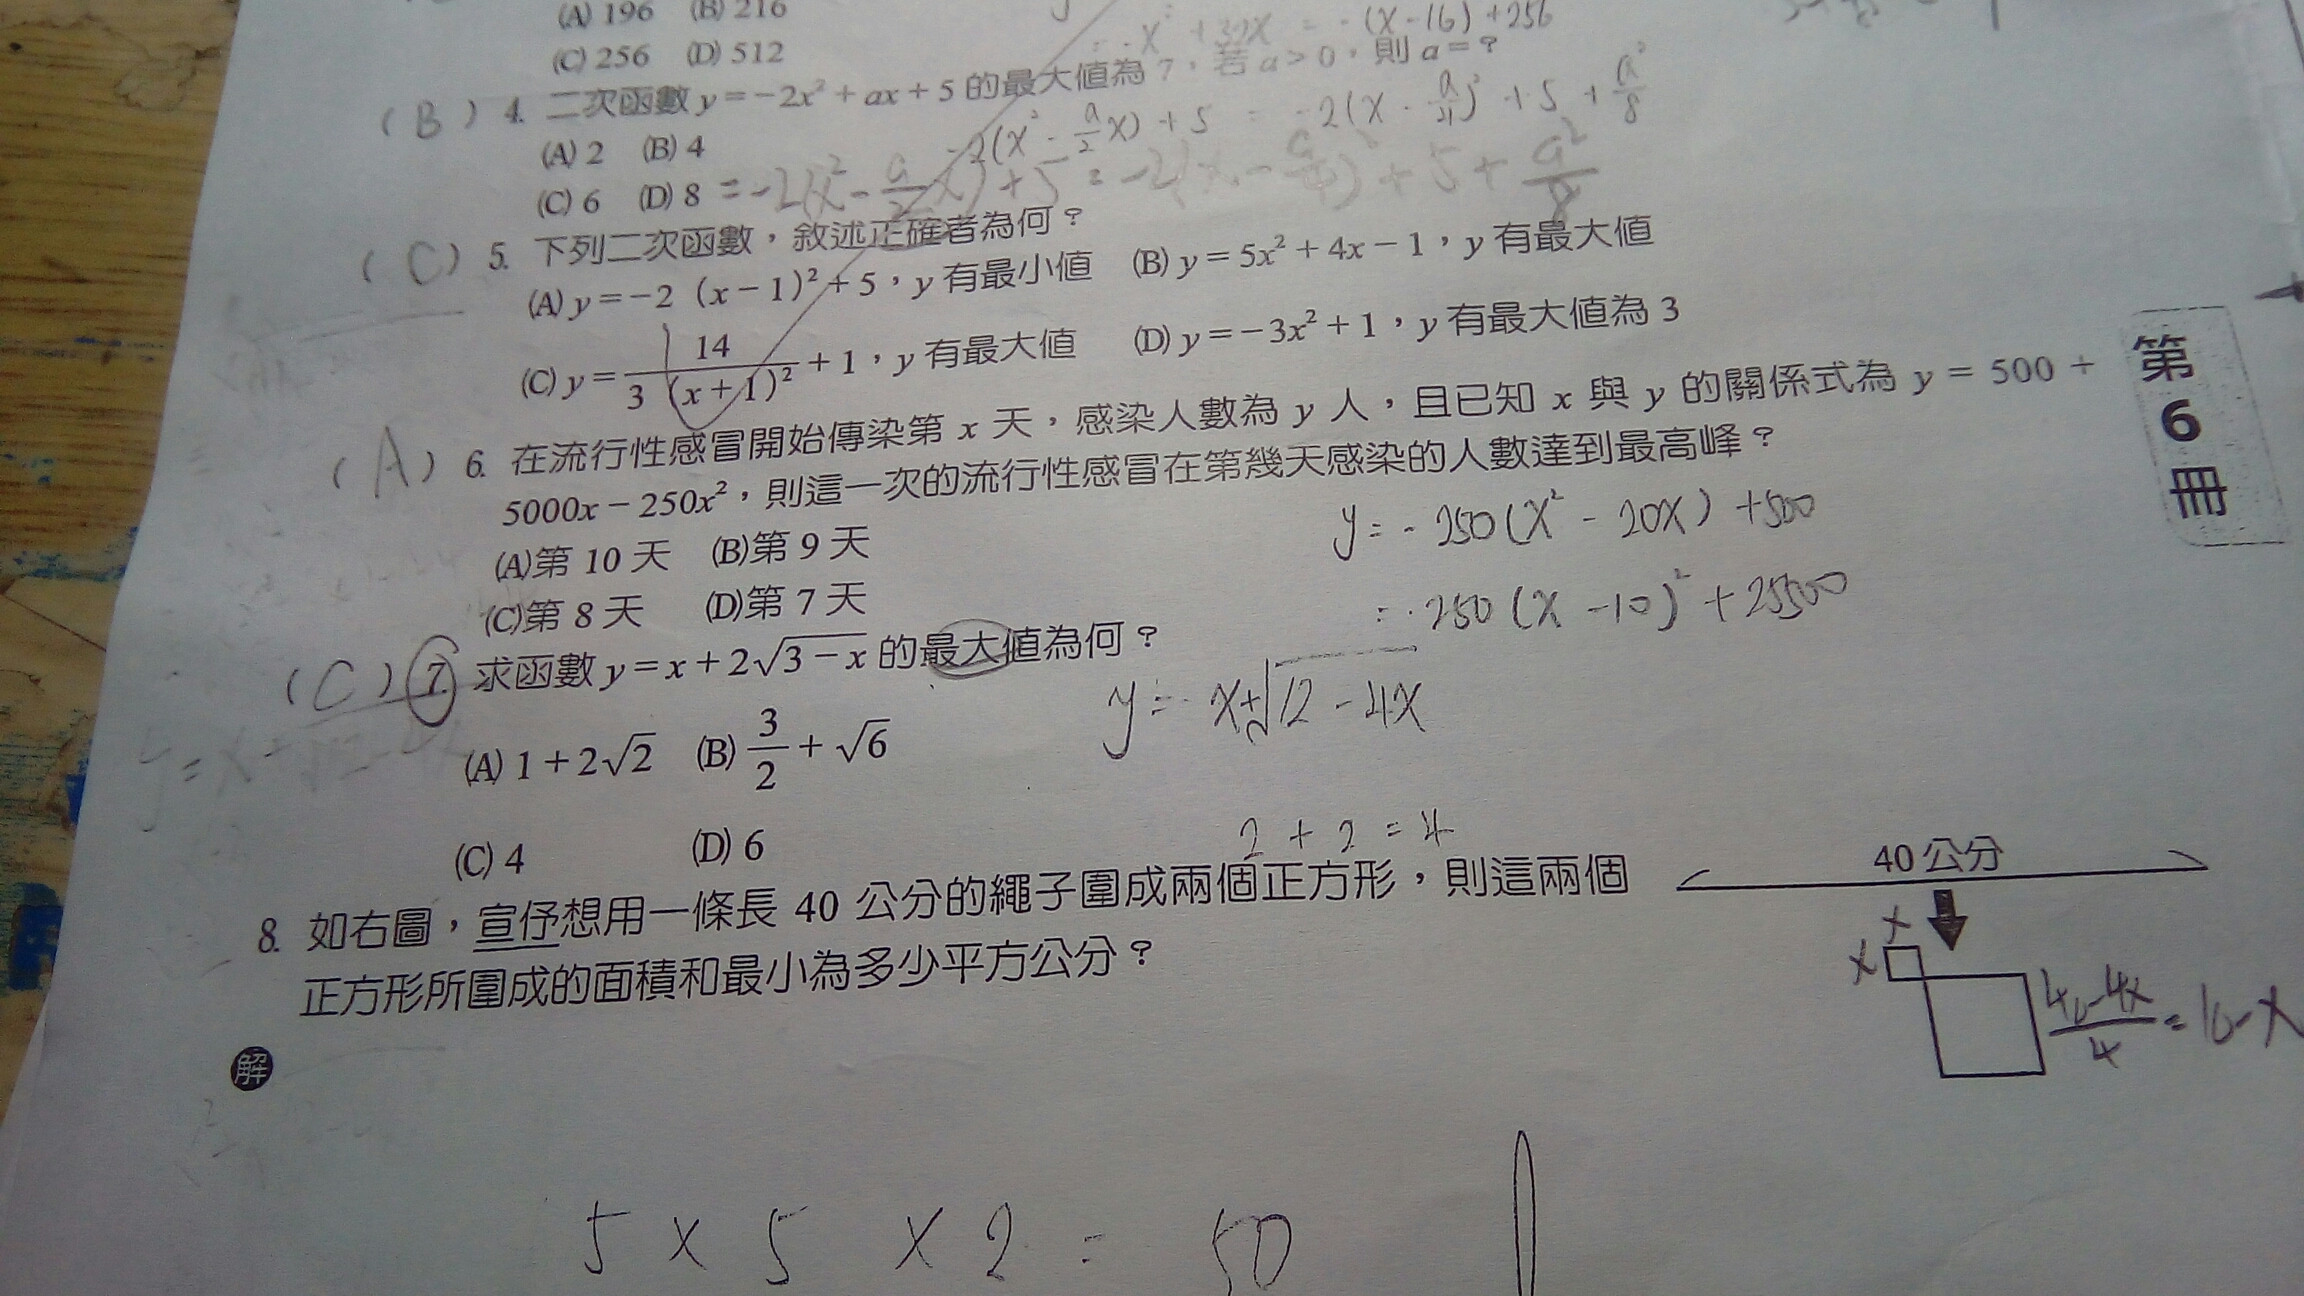 (A) 196 (B) 216
(C) 256 (D) 512
= -x² + 32x = -(x-16) + 256
(B) 4. 二次函數 y = -2x² + ax + 5 的最大值為 7，若 a > 0，則 a = ?
(A) 2 (B) 4
-2(x² - a/2 x) + 5 = -2(x - a/4)² + 5 + a²/8
(C) 6 (D) 8 = -2(x² - a/2 x) + 5 = -2(x - a/4)² + 5 + a²/8
(C) 5. 下列二次函數，敘述正確者為何？
(A) y = -2 (x-1)² + 5，y 有最小值 (B) y = 5x² + 4x - 1，y 有最大值
(C) y = 14 / 3 (x+1)² + 1，y 有最大值 (D) y = -3x² + 1，y 有最大值為 3
(A) 6. 在流行性感冒開始傳染第 x 天，感染人數為 y 人，且已知 x 與 y 的關係式為 y = 500 +
5000x - 250x²，則這一次的流行性感冒在第幾天感染的人數達到最高峰？
(A)第 10 天 (B)第 9 天
(C)第 8 天 (D)第 7 天
y = -250(x² - 20x) + 500
= -250(x - 10)² + 25500
(C) 7. 求函數 y = x + 2√3-x 的最大值為何？
y = x + √12 - 4x
(A) 1 + 2√2 (B) 3/2 + √6
(C) 4 (D) 6
2 + 2 = 4
8. 如右圖，宣伃想用一條長 40 公分的繩子圍成兩個正方形，則這兩個
正方形所圍成的面積和最小為多少平方公分？
40 公分
x
x
40-4x / 4 = 10-x
解
5 × 5 × 2 = 50
第6冊